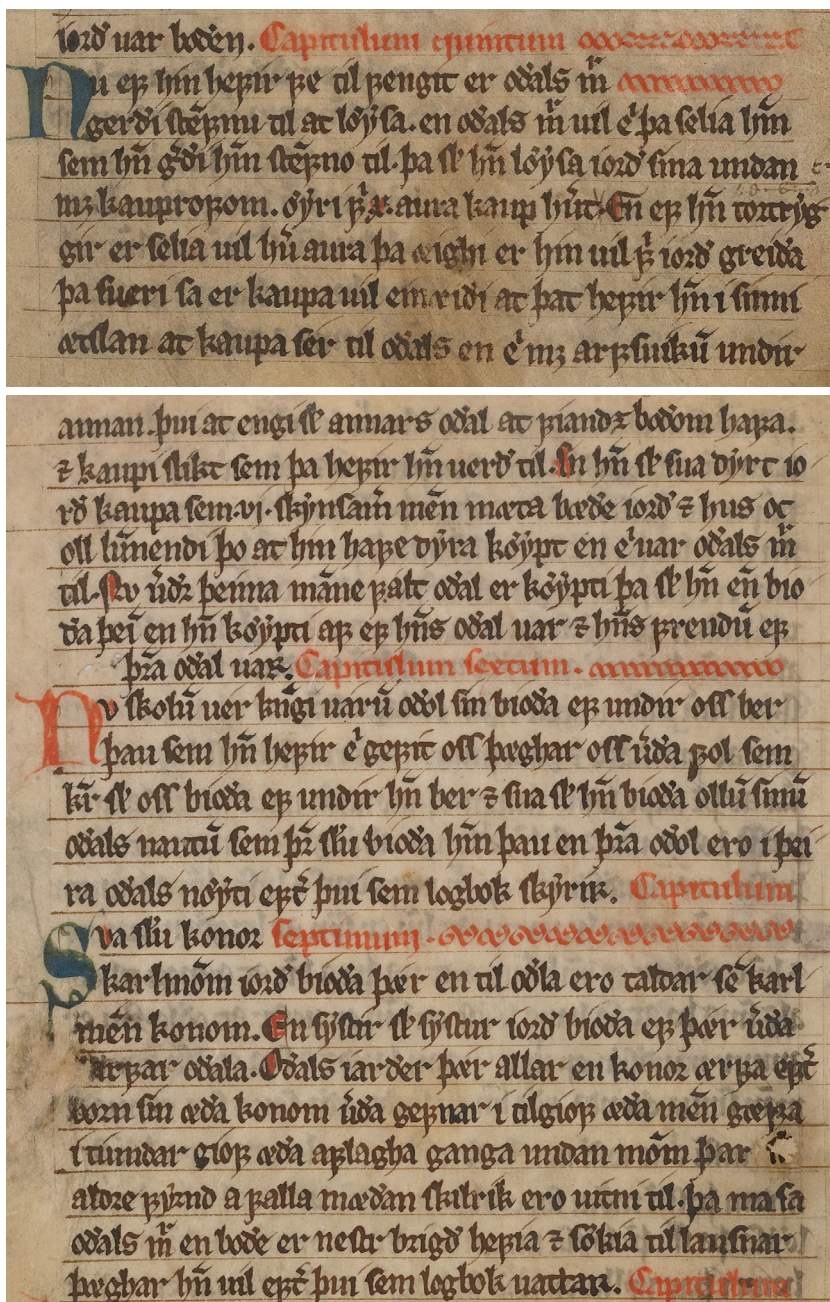 iorð uar boðen. Capitulum quintum
Nu eꝼ hin heꝼir ꝼe til ꝼengit er oðals m̃
gerði steꝼnu til at løysa. en oðals m̃ uil eͥ þa selia hm̅
sem hn̅ gͥði hm̅ steꝼno til. þa sk hn̅ løysa iorð sina undan
mꝫ kauproꝼom. øyri ꝼͥ .x. aura kaup huͥt. En eꝼ hn̅ tortryg
gir er selia uil hũ aura þa æighi er hin uil ꝼͥ iorð greiða
þa sueri sa er kaupa uil eineiði at þat heꝼir hn̅ i sinni
ætllan at kaupa ser til oðals en eͥ mꝫ arꝼsuikū undir
annan. þui at engi sk annars oðal at ꝼiandꝛ boðom haꝼa.
⁊ kaupi slikt sem þa heꝼir hn̅ uerð til. En hn̅ sk sua dyrt io
rð kaupa sem .vi. skynsam̅ men̅ mæta bæðe iorð ⁊ hus oc
oll lun̅endi þo at hin haꝼe dyra køypt en eͥ uar oðals m̃
til. Nv uͥðꝛ þenna mãne ꝼalt oðal er køypti þa sk hn̅ en̅ bio
ða þeī en hn̅ køypti aꝼ eꝼ hn̅s oðal uar ⁊ hn̅s ꝼrendū eꝼ
þr̃a oðal uar. Capitulum sextum.
Nv skolū uer kn̅gi uarū oðol sin bioða eꝼ undir oss ber
þau sem hn̅ heꝼir eͥ geꝼit oss þæghar oss uͥða ꝼol sem
kr̃ sk oss bioða eꝼ undir hn̅ ber ⁊ sua sk hn̅ bioða ollū sinū
oðals nautū sem þr̃ slu bioða hm̅ þau en þr̃a oðol ero i þei
ra oðals nøyti eꝼtͥ þui sem logbok skyrir. Capitulum
Sva slu konor septimum.
karlmõm iorð bioða þær en til oðla ero taldar sē karl
men̅ konom. En systir sk systur iorð bioða eꝼ þær uͥða
arꝼar oðala. Oðals iarðer þær allar en konor ærꝼa eꝼtͥ
born sin æða konom uͥða geꝼnar i tilgioꝼ æða men̅ gæꝼa
i tiundar gioꝼ æða aꝼlagha ganga undan mõm þar
aldre ꝼyrnd a ꝼalla mæðan skilrik ero uitni til. þa ma sa
oðals m̃ en boðe er nestr brigð heꝼia ⁊ sökia til lausnar
þæghar hn̅ uil eꝼtͥ þui sem logbok uattar. Capitulum